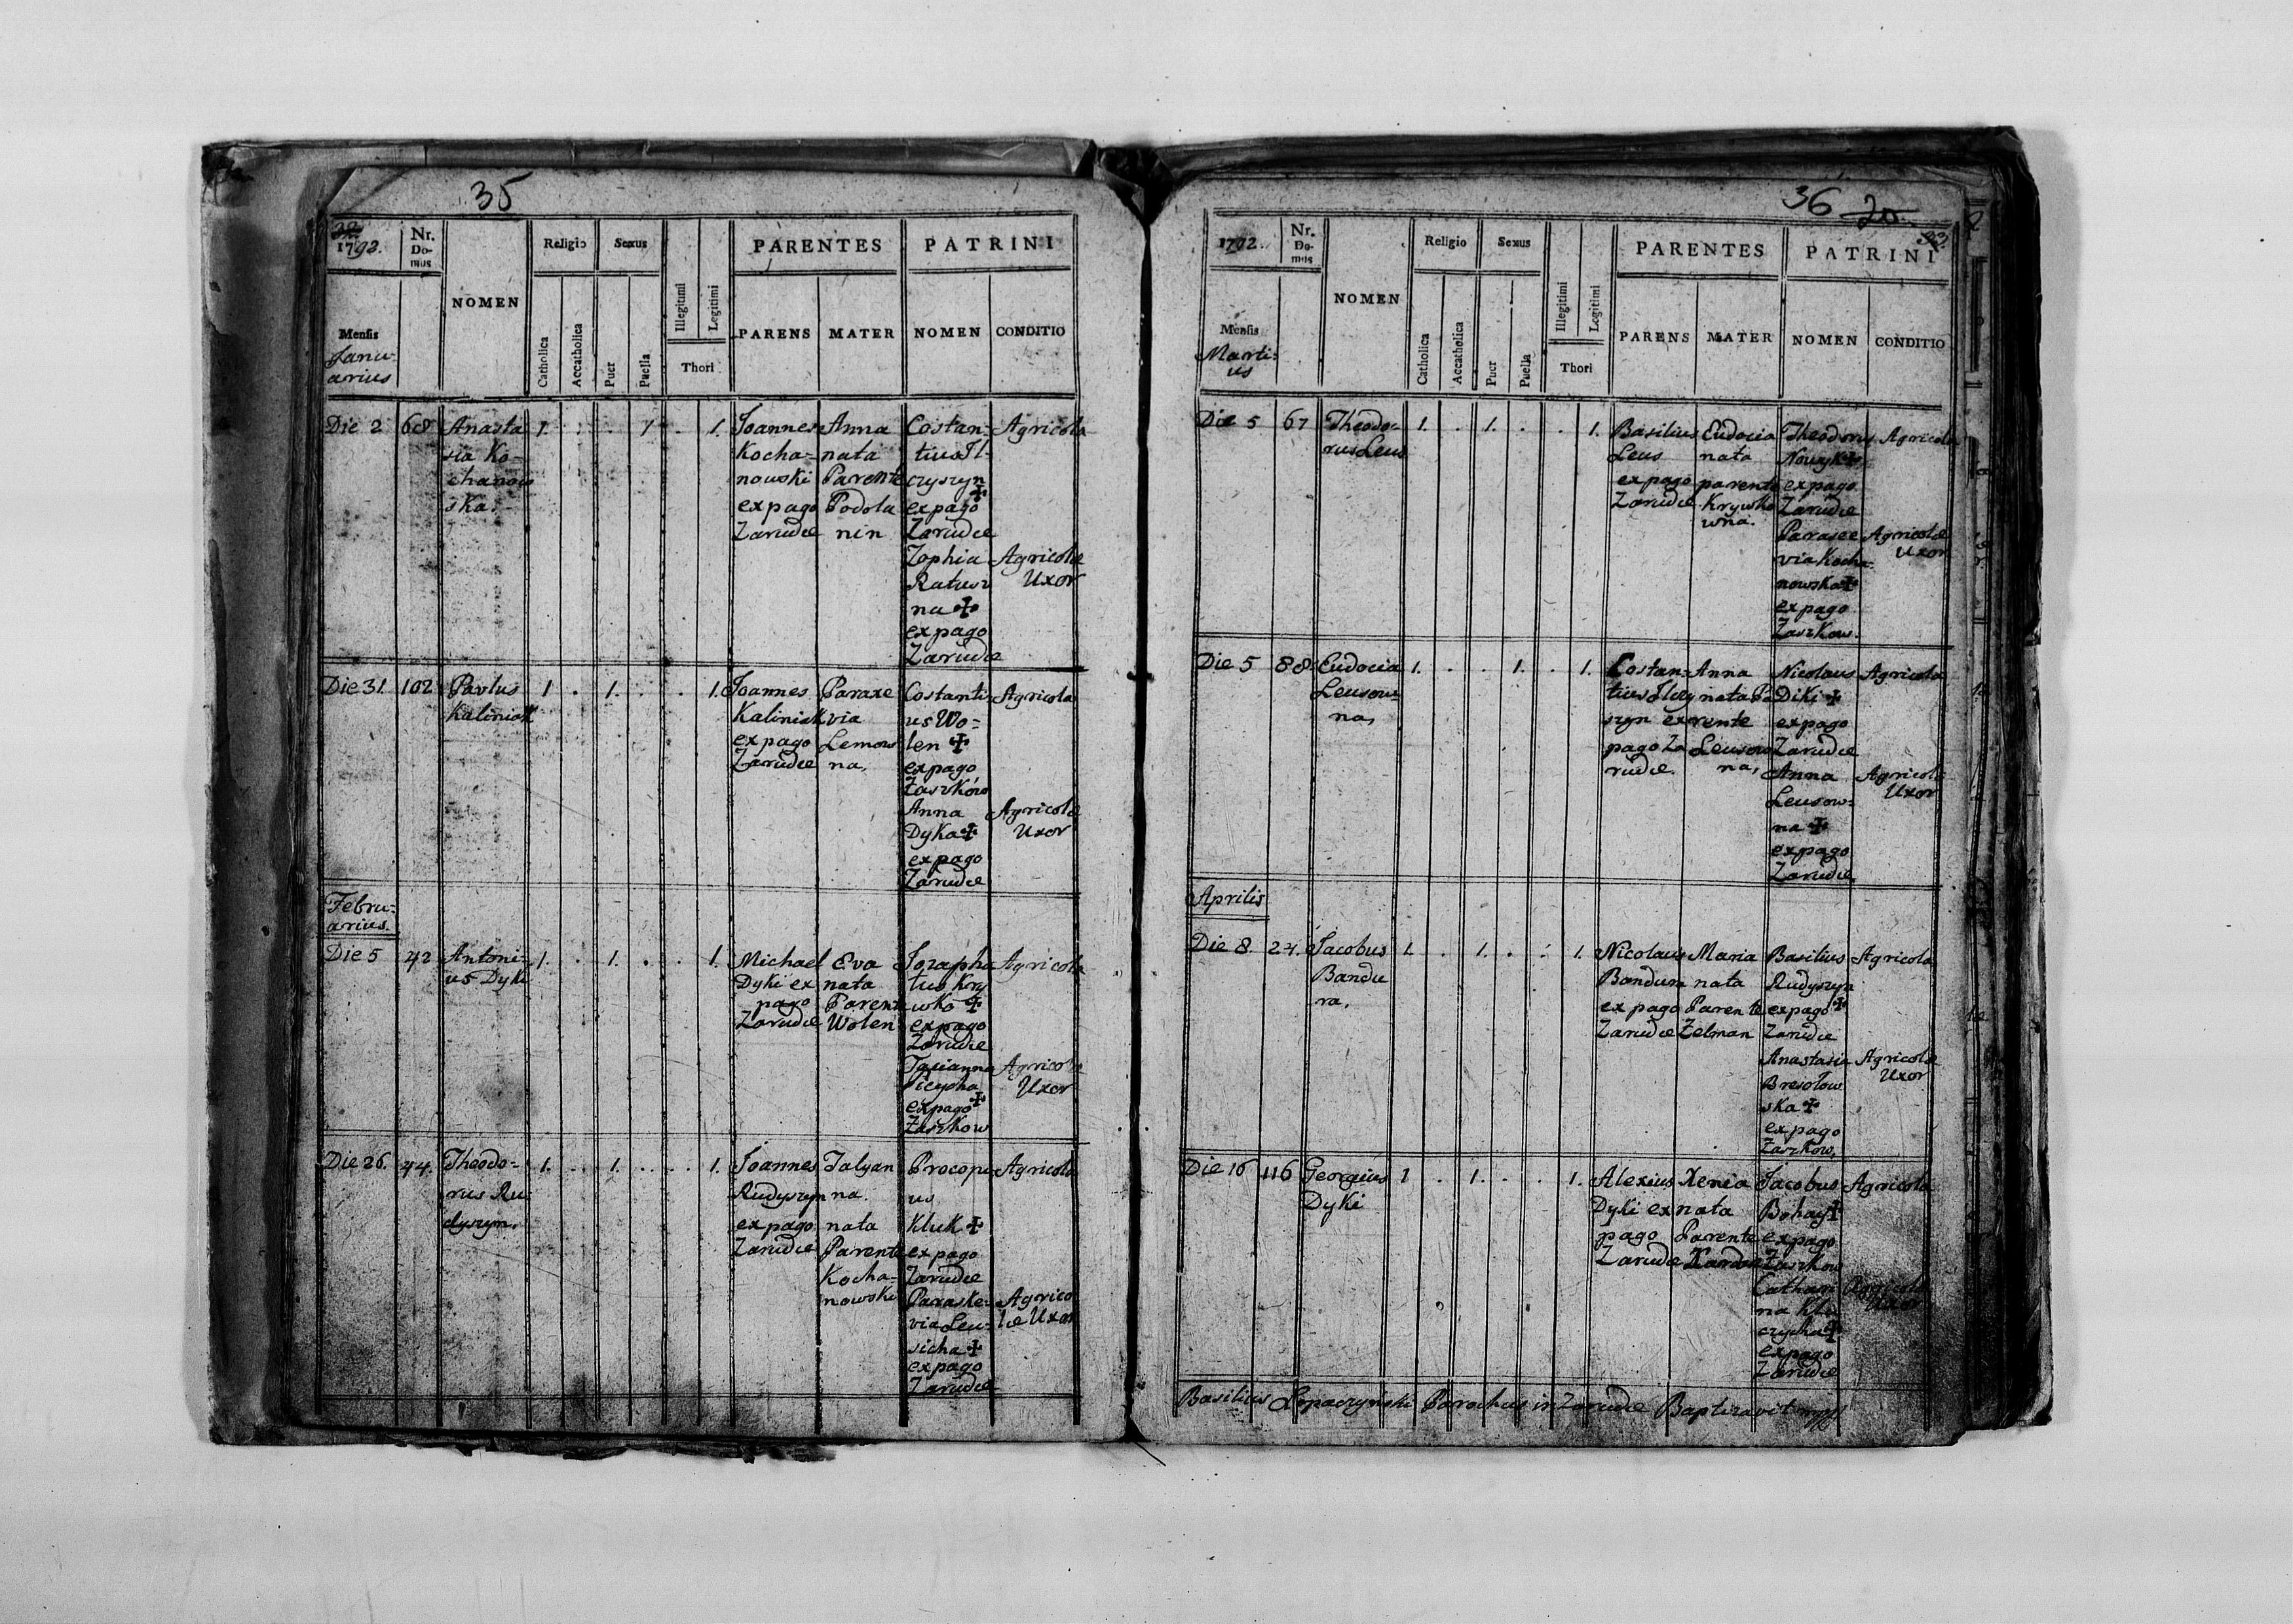 35
1792.
Nr. Domus
NOMEN
Religio
Sexus
PARENTES
PATRINI
Mensis
Catholica
Accatholica
Puer
Puella
Illegitimi
Legitimi
Thori
PARENS
MATER
NOMEN
CONDITIO
Janu-
arius
Die 2
68
Anasta
sia Ko-
chanow
ska.
1.
.
.
1
.
1.
Joannes
Kocha-
nowski
ex pago
Zarudce
Anna
nata
Parente
Podola
nin
Costan-
tius Il-
czyszyn
✠
ex pago
Zarudce
Zophia
Ratusz
na ✠
ex pago
Zarudce
Agricola
Agricolæ
Uxor
Die 31.
102
Pavlus
Kaliniak
1
.
1.
.
.
1.
Joannes
Kaliniak
ex pago
Zarudce
Paraxe
via
Lemow
na,
Costanti-
us Wo-
len ✠
ex pago
Zaszków
Anna
Dyka ✠
ex pago
Zarudce
Agricola
Agricolæ
Uxor
Febru-
arius.
Die 5
42
Antoni-
us Dyki
1.
.
1.
.
.
1.
Michael
Dyki ex
pago
Zarudce
Eva
nata
Parente
Wolen
Jozapha
tus Kry
wko ✠
ex pago
Zarudce
ex pago ✠
Zaszkow
Agricola
Agricolæ
Uxor
Die 26.
44.
Theodo-
rus Ru
dyszyn.
1.
.
1.
.
.
1.
Joannes
Rudyszyn
ex pago
Zarudce
Tatyan
na.
nata
Parente
Kocha-
nowski
Procopi
us
Kluk ✠
ex pago
Zarudce
Paraske-
via Leu-
sicha ✠
ex pago
Zarudce
Agricola
Agrico
læ Uxor
36
20.
33.
1792.
Nr. Domus
NOMEN
Religio
Sexus
PARENTES
PATRINI
Mensis
Catholica
Accatholica
Puer
Puella
Illegitimi
Legitimi
Thori
PARENS
MATER
NOMEN
CONDITIO
Marti-
us
Die 5
67
Theodo-
rus Leus
1.
.
1.
.
.
1.
Basilius
Leus
ex pago
Zarudce
Eudocia
nata
parente
Krywko
wna.
Theodorus
Nowyk ✠
ex pago
Zarudce
Parasce
via Kocha-
nowska ✠
ex pago
Zaszkow.
Agricola
Agricolæ
Uxor
Die 5
88
Eudocia
Leusow-
na,
1.
.
.
1.
.
1.
Costan-
tius Ilczy
szyn ex
pago Za
rudce.
Anna
nata Pa
rente
Leusow
na,
Nicolaus
Diki ✠
ex pago
Zarudce
Anna
Leusow-
na ✠
ex pago
Zarudce.
Agricola
Agricolæ
Uxor
Aprilis
Die 8.
24.
Jacobus
Bandu
ra,
1.
.
1.
.
.
1.
Nicolaus
Bandura
ex pago
Zarudce
Maria
nata
Parente
Zelman
Basilius
Rudyszyn
ex pago ✠
Zarudce
Anastasia
Bresolow
ska ✠
ex pago
Zaszkow,
Agricola
Agricolæ
Uxor
Die 16
116
Georgius
Dyki
1
.
1.
.
.
1.
Alexius
Dyki ex
pago
Zarudce
Xenia
nata
Parente
Jacobus
Bohay ✠
ex pago
Zaszkow
Cathari
na Klu
czycha ✠
ex pago
Zarudce
Agricola
Agricolæ
Uxor
Basilius Lopaczynski Parochus in Zarudce Baptizavit mpp